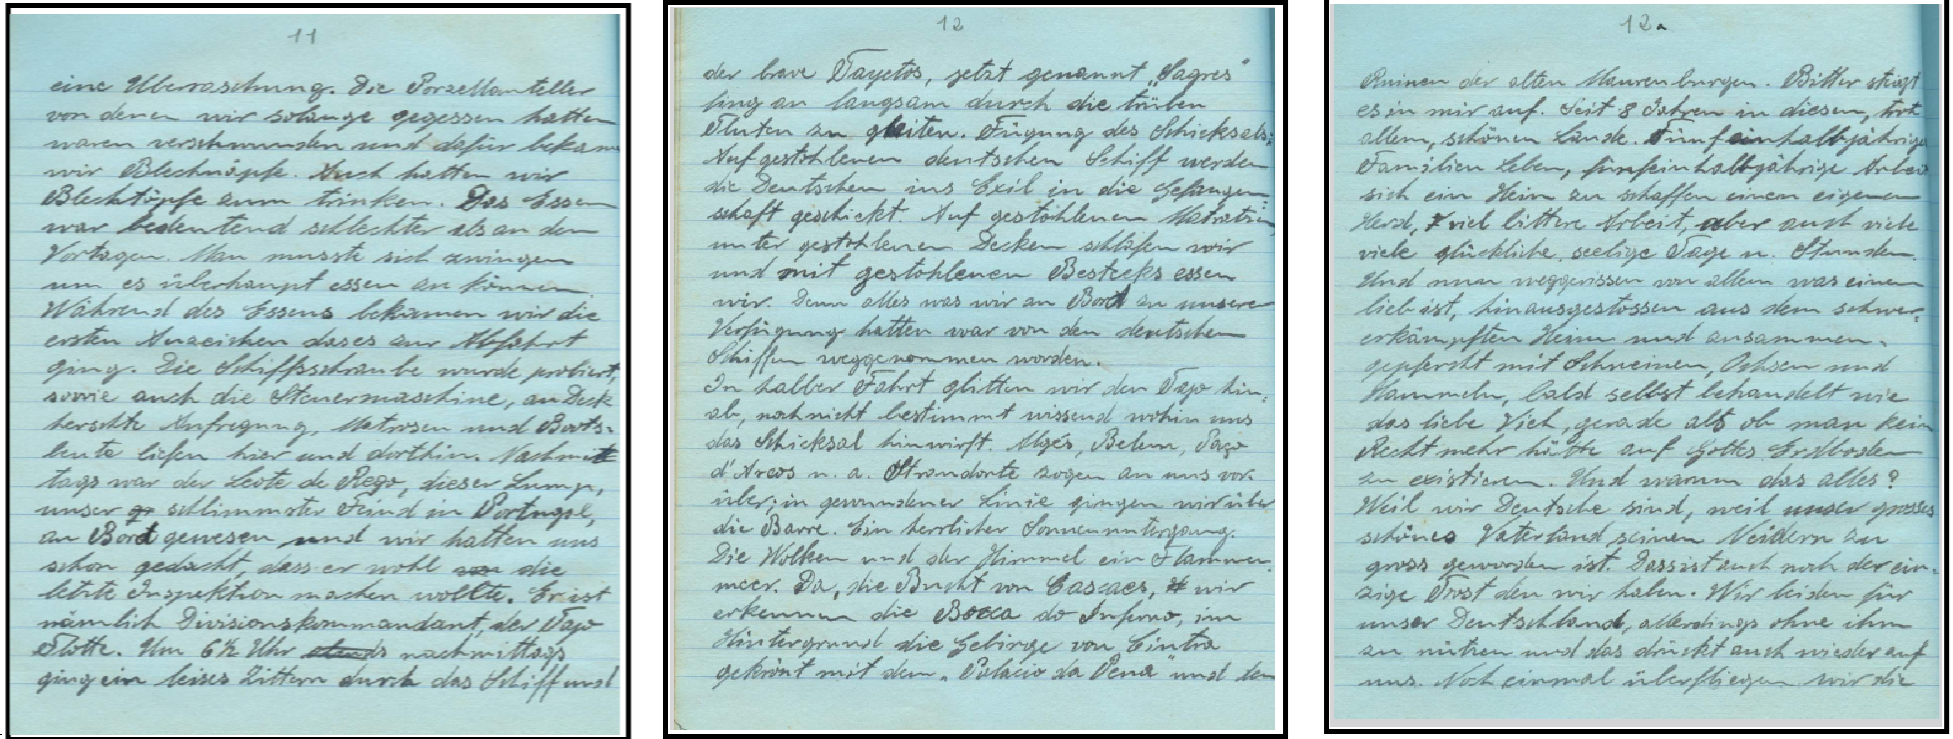 11
eine Uberraschung. Die Porzellanteller
von denen wir solange gegessen hatten
waren verschwunden und dafür bekam
wir Blechnäpfe. Auch hatten wir
Blechtöpfe zum trinken. Das Essen
war bedeutend schlechter als an den
Vortagen. Man musste sich zwingen
um es überhaupt essen zu können
Während des Essens bekamen wir die
ersten Anzeichen dases zur Abfahrt
ging. Die Schiffsschraube wurde probiert,
sowie auch die Steuermaschine, an Deck
herschte Aufregung, Matrosen und Boots-
leute liefen hier und dorthin. Nachmit
tags war der Leote de Rego, dieser Lump,
unser schlimmster Feind in Portugal,
an Bord gewesen und wir hatten uns
schon gedacht, dass er wohl die
letzte Inspektion machen wollte. Er ist
nämlich Divisionskommandant, der Tajo
Flotte. Um 6½ Uhr nachmittags
ging ein leises Zittern durch das Schiff und
12
der brave Taygetos, jetzt genannt „Sagres"
fing an langsam durch die trüben
Fluten zu gleiten. Fügung des Schicksals:
Auf gestohlenen deutschen Schiff werden
die Deutschen ins Exil in die Gefangen
schaft geschickt. Auf gestohlenen Matratzen
unter gestohlenen Decken schlafen wir
und mit gestohlenen Bestecks essen
wir. Denn alles was wir an Bord zu unsere
Verfügung hatten war von den deutschen
Schiffen weggenommen worden.
In halber Fahrt glitten wir den Tajo hin-
ab, noch nicht bestimmt wissend wohin uns
das Schicksal hinwirft. Alges, Belem, Paço
d'Arcos u. a. Strandorte zogen an uns vor-
über; in gewundener Linie gingen wir über
die Barre. Ein herrlicher Sonnenuntergang.
Die Wolken und der Himmel ein Flammen
meer. Da, die Bucht von Cascaes, wir
erkennen die Bocca do Inferno, im
Hintergrund die Gebirge von Cintra
gekrönt mit dem „Palacio da Pena" und den
12a
Ruinen der alten Maurenburgen. Bitter steigt
es in mir auf. Seit 8 Jahren in diesen, trotz
allem, schönen Lande. Fünfeinhalbjährige
Familien Leben, fünfeinhalbjährige Arbeit
sich ein Heim zu schaffen einem eigenen
Herd, viel bittere Arbeit, aber auch viele
viele glückliche, seelige Tage u. Stunden.
Und nun weggerissen von allem was einem
lieb ist, hinausgestossen aus dem schwer-
erkämpften Heim und zusammen-
gepfercht mit Schweinen, Ochsen und
Hammeln, bald selbst behandelt wie
das liebe Vieh, gerade als ob man kein
Recht mehr hätte auf Gottes Erdboden
zu existieren. Und warum das alles?
Weil wir Deutsche sind, weil unser grosses
schönes Vaterland seinen Neidern zu
gross geworden ist. Dass ist auch noch der ein-
zige Trost den wir haben. Wir leiden für
unser Deutschland, allerdings ohne ihm
zu nützen und das drückt auch wieder auf
uns. Noch einmal überfliegen wir die